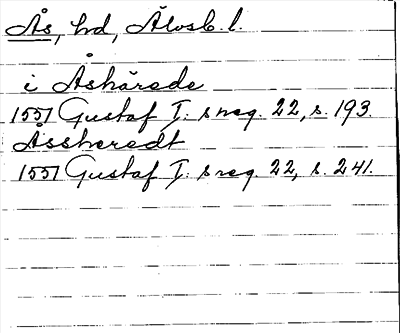 Ås, hd, Älvsb. l.
i Åshärede
1557 Gustaf I: s reg. 22, s. 193.
Åssheredt
1557 Gustaf I: s reg. 22, s. 241.